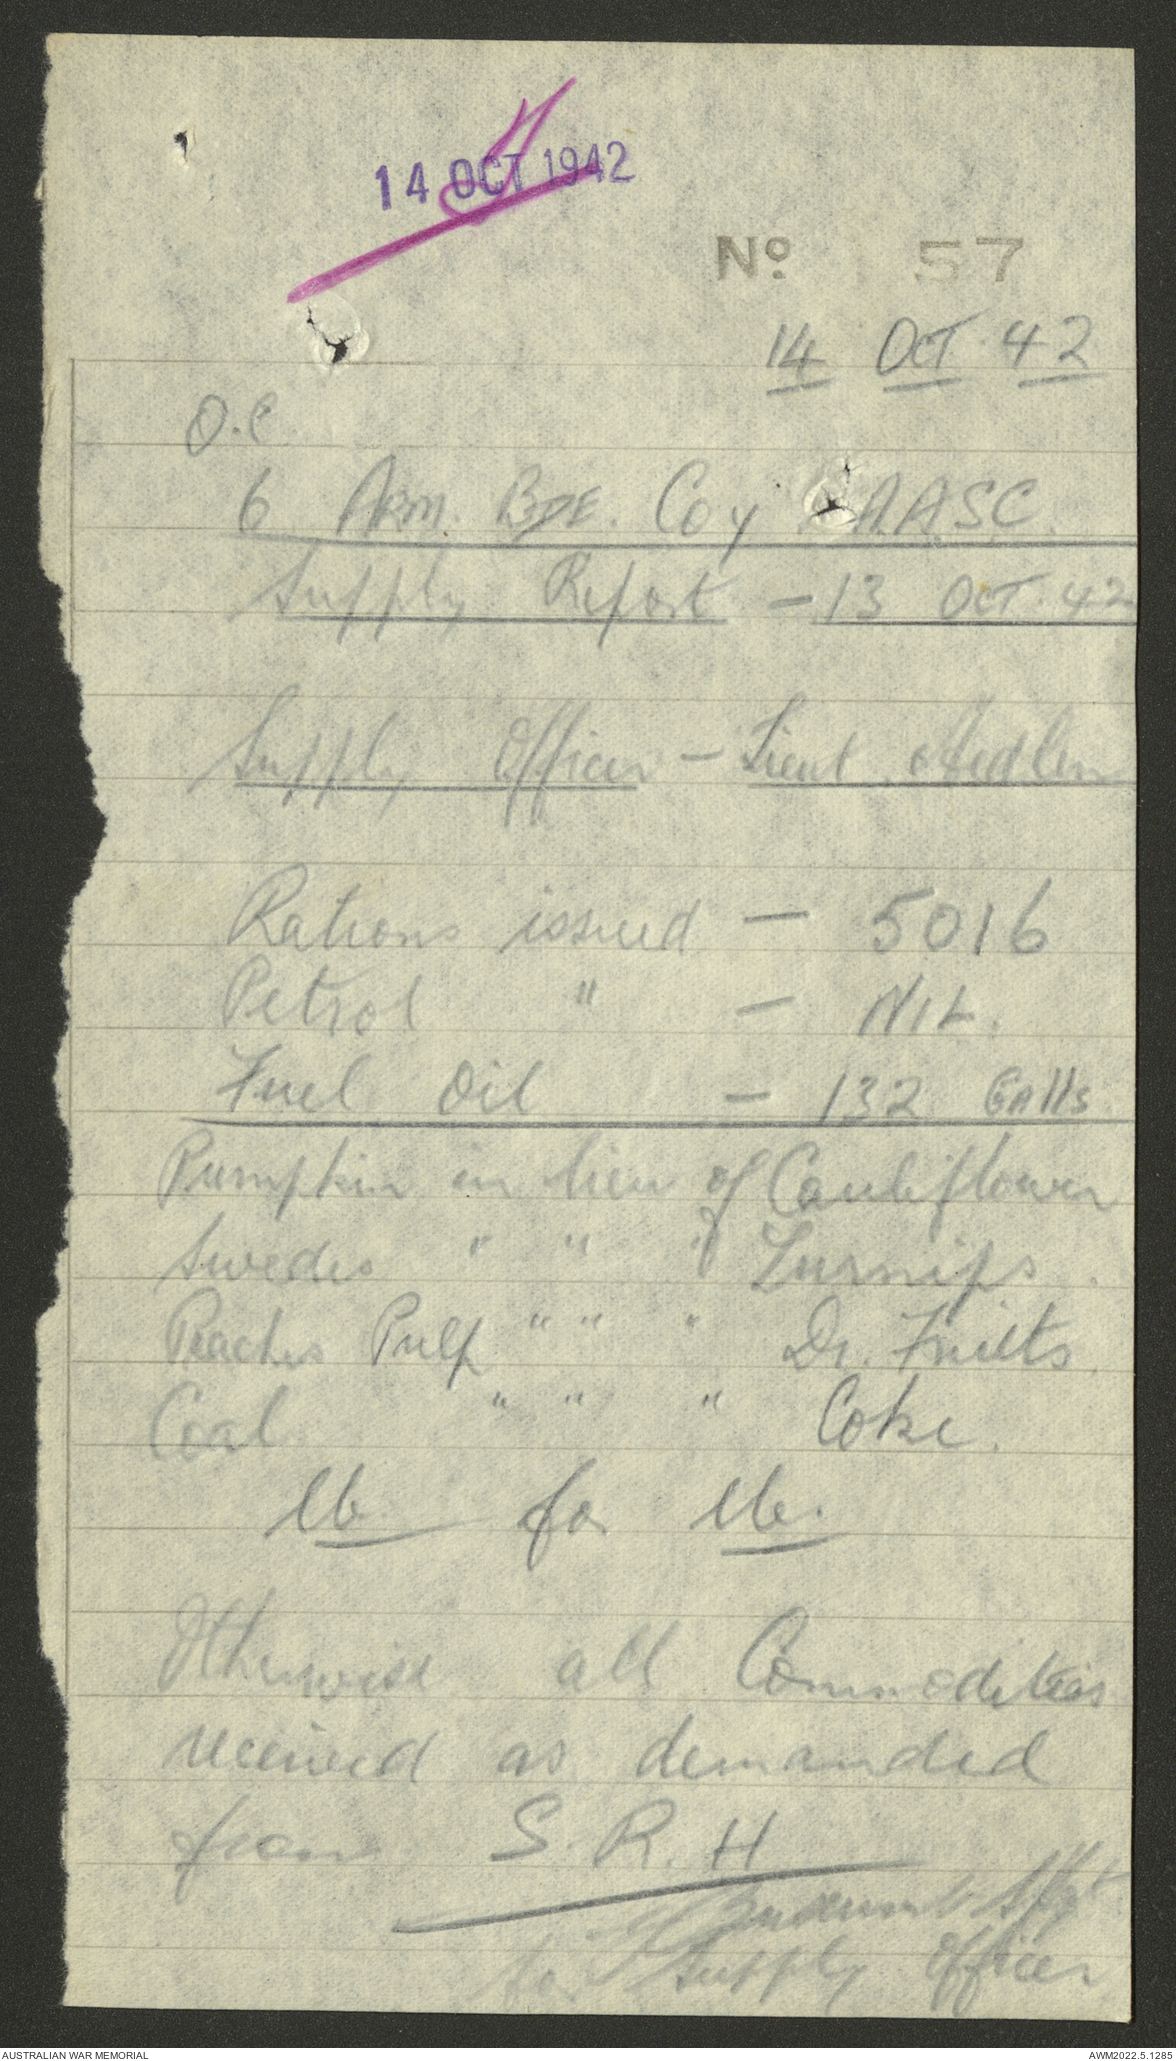 14 OCT 1942
No 57
14 OCT. 42
O.C.
6 ARM. BDE. Coy A.A.S.C.
Supply Report - 13 OCT. 42
Supply Officer - Lieut. Medlin
Rations issued - 5016
Petrol " - NIL.
Fuel Oil - 132 Galls.
Pumpkin in lieu of Cauliflower
Swedes " " " Turnips.
Peaches Pulp " " " Dr. Fruits.
Coal " " " Coke.
lb. for lb.
Otherwise all Commodities
received as demanded
from S.R.H
S/Sgt
for Supply Officer
AUSTRALIAN WAR MEMORIAL
AWM2022.5.1285